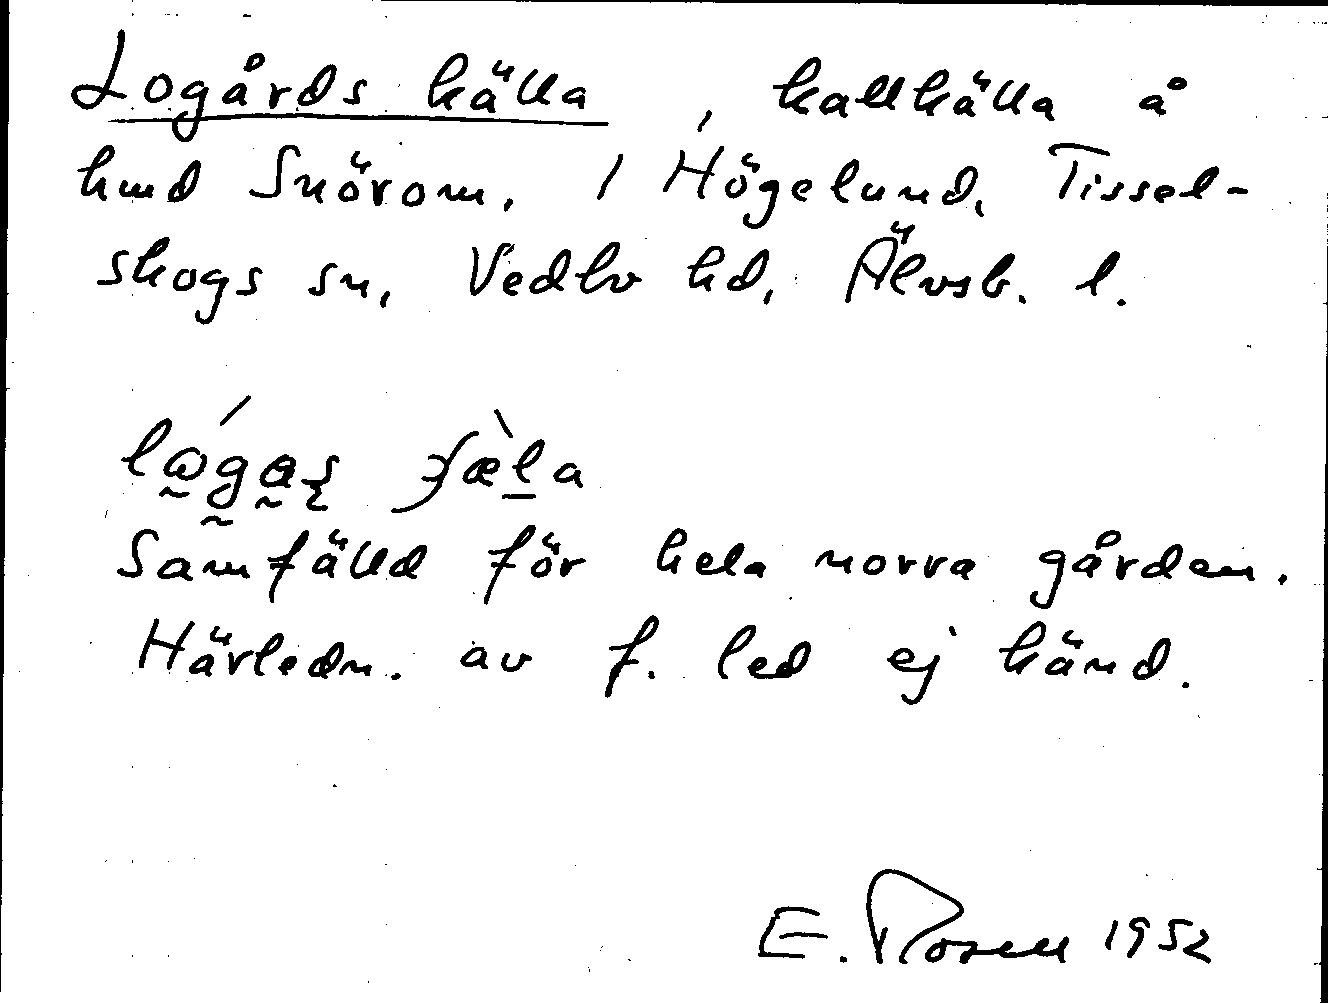 Logårds källa, kallkälla å
hmd Snörom, 1 Högelund, Tissel-
skogs sn, Vedbo hd, Älvsb. l.
Samfälld för hela norra gården.
Härledn. av f. led ej känd.
E. Rosell 1952